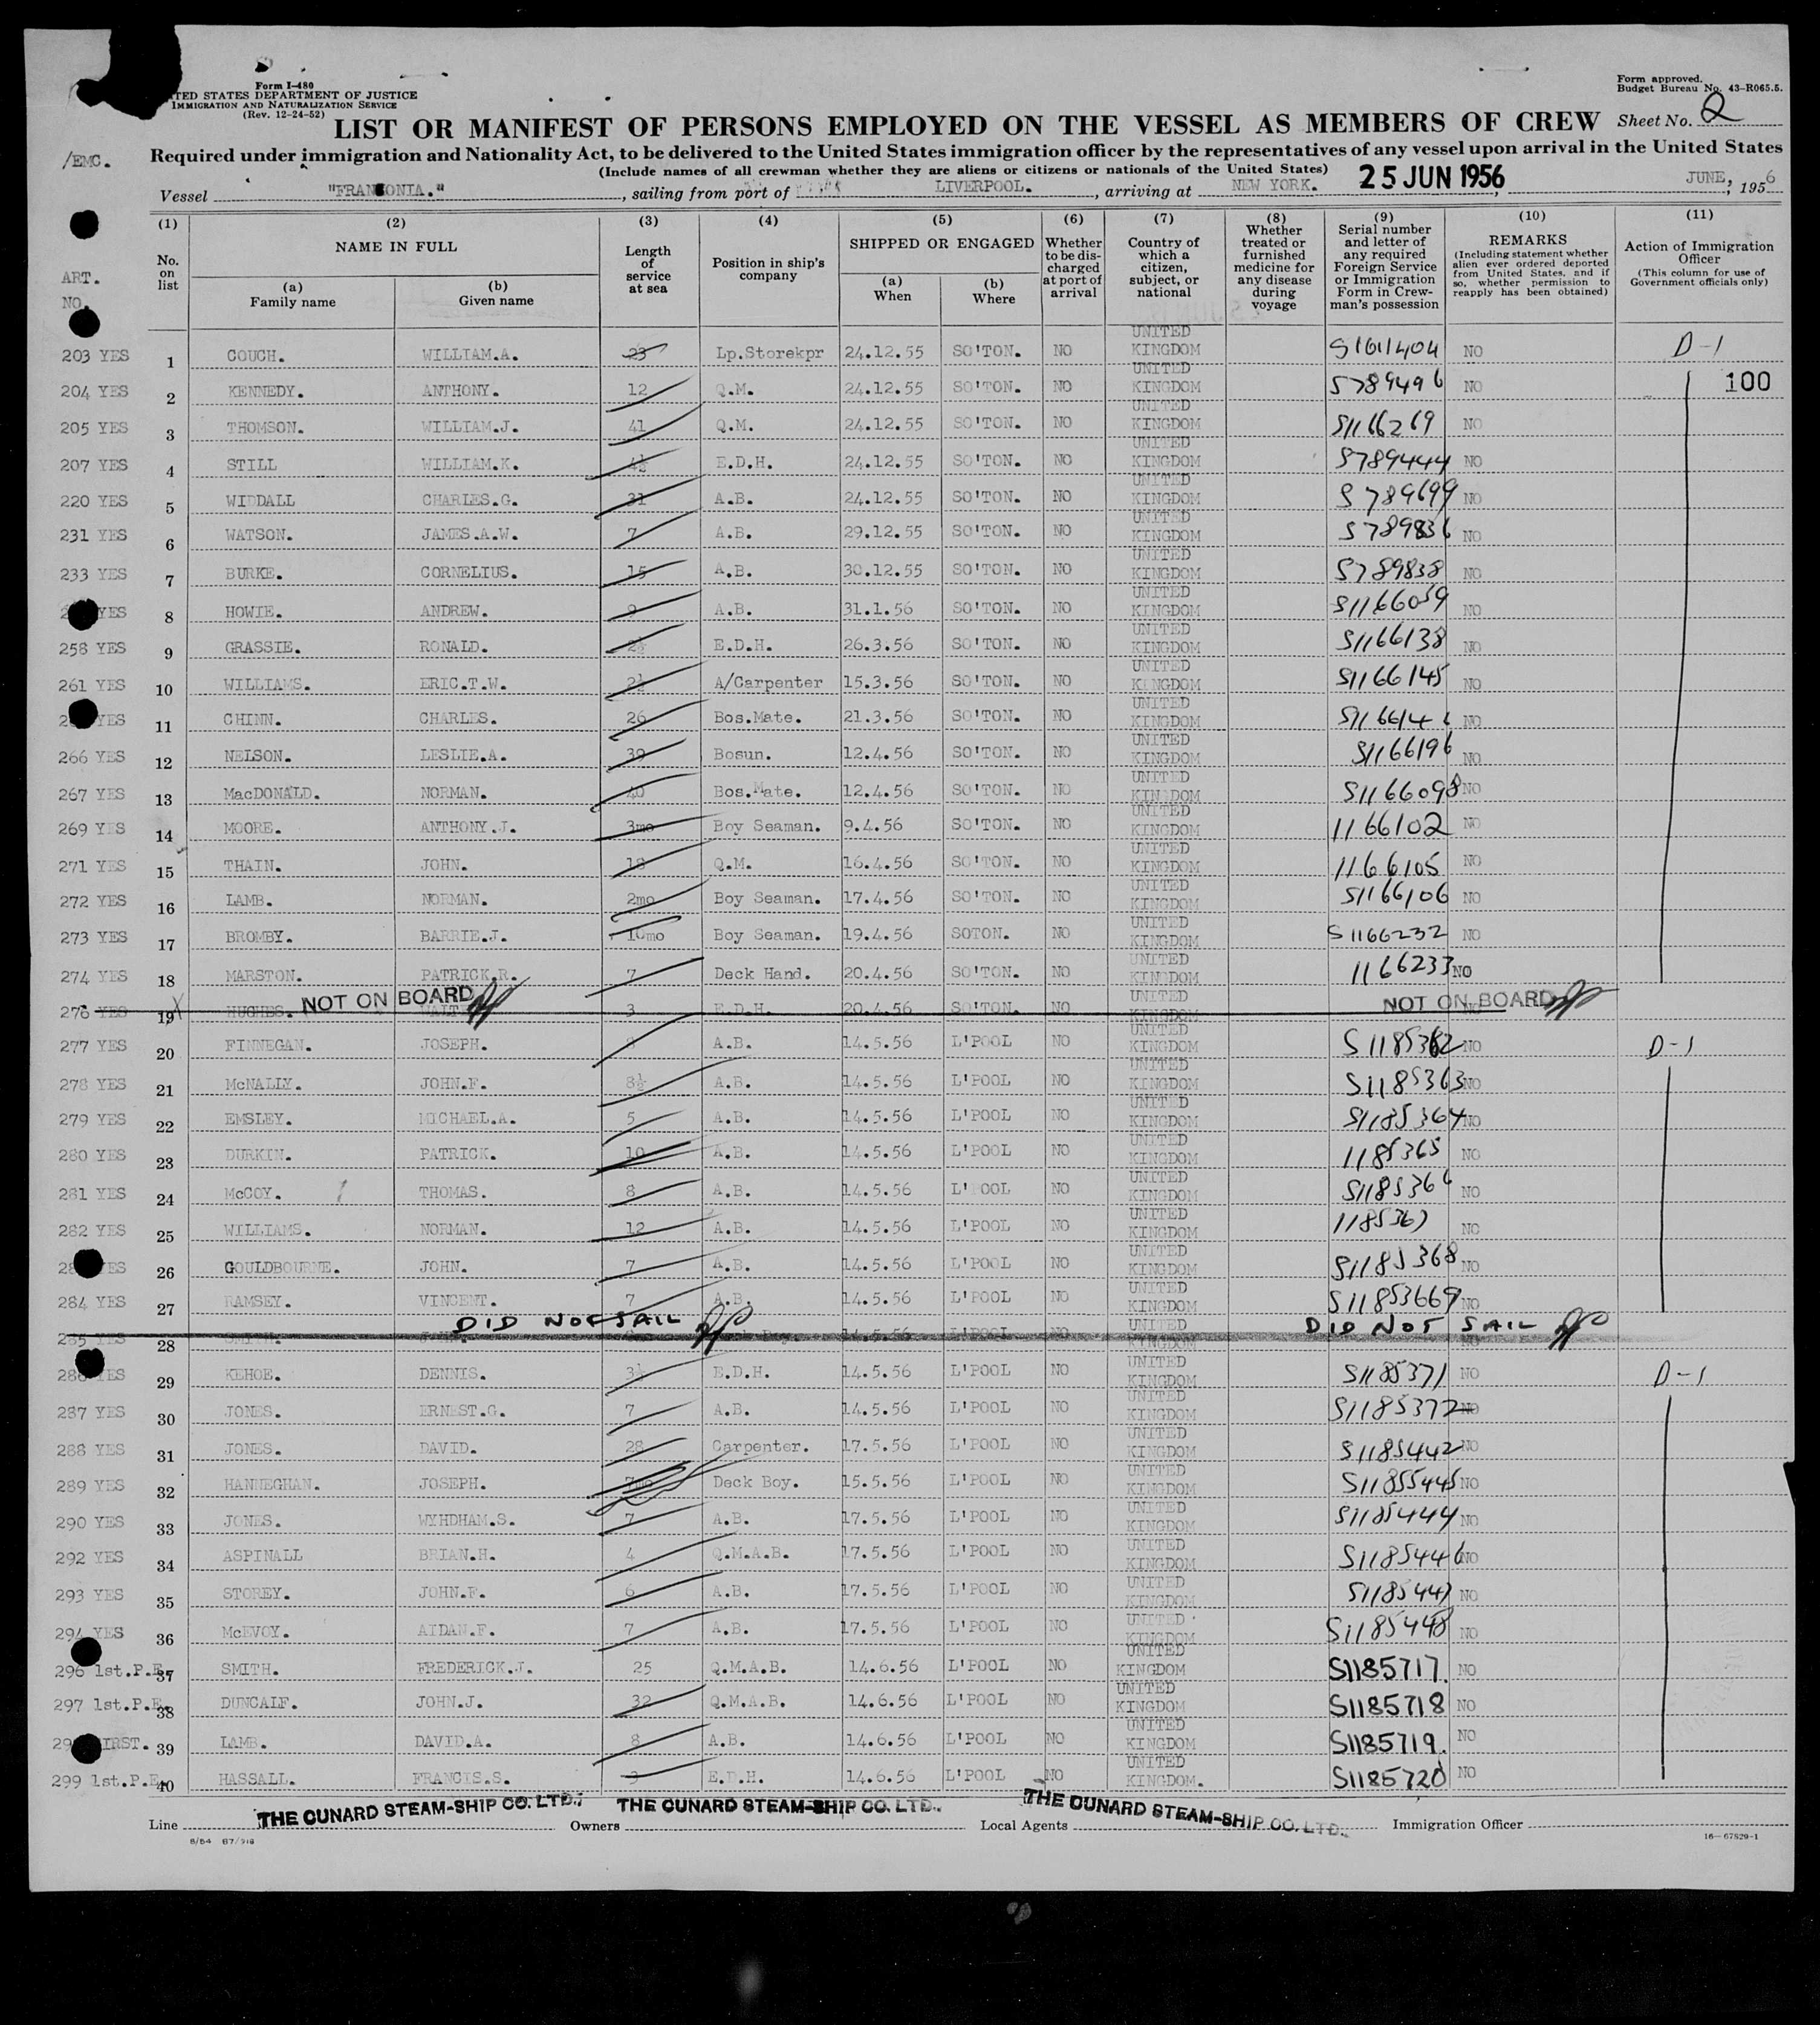 Form I-480
TED STATES DEPARTMENT OF JUSTICE
IMMIGRATION AND NATURALIZATION SERVICE
(Rev. 12-24-52)
Form approved.
Budget Bureau No. 43-R065.5.
LIST OR MANIFEST OF PERSONS EMPLOYED ON THE VESSEL AS MEMBERS OF CREW Sheet No. 2
/EMC.
Required under immigration and Nationality Act, to be delivered to the United States immigration officer by the representatives of any vessel upon arrival in the United States
(Include names of all crewman whether they are aliens or citizens or nationals of the United States)
Vessel "FRANCONIA." , sailing from port of LIVERPOOL. , arriving at NEW YORK. 25 JUN 1956 , JUNE, 1956
(1) (2) (3) (4) (5) (6) (7) (8) (9) (10) (11)
ART. NO. No. on list NAME IN FULL (a) Family name (b) Given name Length of service at sea Position in ship's company SHIPPED OR ENGAGED (a) When (b) Where Whether to be discharged at port of arrival Country of which a citizen, subject, or national Whether treated or furnished medicine for any disease during voyage Serial number and letter of any required Foreign Service or Immigration Form in Crewman's possession REMARKS (Including statement whether alien ever ordered deported from United States, and if so, whether permission to reapply has been obtained) Action of Immigration Officer (This column for use of Government officials only)
203 YES 1 COUCH. WILLIAM.A. 23 Lp.Storekpr 24.12.55 SO'TON. NO UNITED KINGDOM S1611404 NO D-1
204 YES 2 KENNEDY. ANTHONY. 12 Q.M. 24.12.55 SO'TON. NO UNITED KINGDOM S789496 NO 100
205 YES 3 THOMSON. WILLIAM.J. 41 Q.M. 24.12.55 SO'TON. NO UNITED KINGDOM S1166269 NO
207 YES 4 STILL WILLIAM.K. 4½ E.D.H. 24.12.55 SO'TON. NO UNITED KINGDOM S789444 NO
220 YES 5 WIDDALL CHARLES.G. 31 A.B. 24.12.55 SO'TON. NO UNITED KINGDOM S789699 NO
231 YES 6 WATSON. JAMES.A.W. 7 A.B. 29.12.55 SO'TON. NO UNITED KINGDOM S789836 NO
233 YES 7 BURKE. CORNELIUS. 15 A.B. 30.12.55 SO'TON. NO UNITED KINGDOM S789838 NO
YES 8 HOWIE. ANDREW. 9 A.B. 31.1.56 SO'TON. NO UNITED KINGDOM S1166059 NO
258 YES 9 GRASSIE. RONALD. 2½ E.D.H. 26.3.56 SO'TON. NO UNITED KINGDOM S1166138 NO
261 YES 10 WILLIAMS. ERIC.T.W. 2½ A/Carpenter 15.3.56 SO'TON. NO UNITED KINGDOM S1166145 NO
YES 11 CHINN. CHARLES. 26 Bos.Mate. 21.3.56 SO'TON. NO UNITED KINGDOM NO
266 YES 12 NELSON. LESLIE.A. 39 Bosun. 12.4.56 SO'TON. NO UNITED KINGDOM S1166196 NO
267 YES 13 MacDONALD. NORMAN. 40 Bos.Mate. 12.4.56 SO'TON. NO UNITED KINGDOM S1166098 NO
269 YES 14 MOORE. ANTHONY.J. 3mo Boy Seaman. 9.4.56 SO'TON. NO UNITED KINGDOM 1166102 NO
271 YES 15 THAIN. JOHN. 18 Q.M. 16.4.56 SO'TON. NO UNITED KINGDOM 1166105 NO
272 YES 16 LAMB. NORMAN. 2mo Boy Seaman. 17.4.56 SO'TON. NO UNITED KINGDOM S1166106 NO
273 YES 17 BROMBY. BARRIE.J. 10mo Boy Seaman. 19.4.56 SOTON. NO UNITED KINGDOM S1166232 NO
274 YES 18 MARSTON. PATRICK.R. 7 Deck Hand. 20.4.56 SO'TON. NO UNITED KINGDOM 1166233 NO
276 YES 19 HUGHES. NOT ON BOARD WALT 3 E.D.H. 20.4.56 SO'TON. NO UNITED KINGDOM NOT ON BOARD NO
277 YES 20 FINNEGAN. JOSEPH. A.B. 14.5.56 L'POOL NO UNITED KINGDOM S1185362 NO D-1
278 YES 21 McNALLY. JOHN.F. 8½ A.B. 14.5.56 L'POOL NO UNITED KINGDOM S1185363 NO
279 YES 22 EMSLEY. MICHAEL.A. 5 A.B. 14.5.56 L'POOL NO UNITED KINGDOM S1185364 NO
280 YES 23 DURKIN. PATRICK. 10 A.B. 14.5.56 L'POOL NO UNITED KINGDOM 1185365 NO
281 YES 24 McCOY. THOMAS. 8 A.B. 14.5.56 L'POOL NO UNITED KINGDOM S1185366 NO
282 YES 25 WILLIAMS. NORMAN. 12 A.B. 14.5.56 L'POOL NO UNITED KINGDOM 1185367 NO
YES 26 GOULDBOURNE. JOHN. 7 A.B. 14.5.56 L'POOL NO UNITED KINGDOM S1185368 NO
284 YES 27 RAMSEY. VINCENT. 7 A.B. 14.5.56 L'POOL NO UNITED KINGDOM S11853669 NO
285 YES 28 DID NOT SAIL 14.5.56 L'POOL NO UNITED KINGDOM DID NOT SAIL
286 YES 29 KEHOE. DENNIS. 3½ E.D.H. 14.5.56 L'POOL NO UNITED KINGDOM S1185371 NO D-1
287 YES 30 JONES. ERNEST.G. 7 A.B. 14.5.56 L'POOL NO UNITED KINGDOM S1185372 NO
288 YES 31 JONES. DAVID. 28 Carpenter. 17.5.56 L'POOL NO UNITED KINGDOM S1185442 NO
289 YES 32 HANNEGHAN. JOSEPH. Deck Boy. 15.5.56 L'POOL NO UNITED KINGDOM S11855445 NO
290 YES 33 JONES. WYHDHAM.S. 7 A.B. 17.5.56 L'POOL NO UNITED KINGDOM S1185444 NO
292 YES 34 ASPINALL BRIAN.H. 4 Q.M.A.B. 17.5.56 L'POOL NO UNITED KINGDOM S1185446 NO
293 YES 35 STOREY. JOHN.F. 6 A.B. 17.5.56 L'POOL NO UNITED KINGDOM S1185447 NO
294 YES 36 McEVOY. AIDAN.F. 7 A.B. 17.5.56 L'POOL NO UNITED KINGDOM S1185448 NO
296 1st.P.E. 37 SMITH. FREDERICK.J. 25 Q.M.A.B. 14.6.56 L'POOL NO UNITED KINGDOM S1185717. NO
297 1st.P.E. 38 DUNCALF. JOHN.J. 32 Q.M.A.B. 14.6.56 L'POOL NO UNITED KINGDOM S1185718 NO
IRST. 39 LAMB. DAVID.A. 8 A.B. 14.6.56 L'POOL NO UNITED KINGDOM S1185719. NO
299 1st.P.E. 40 HASSALL. FRANCIS.S. 3 E.D.H. 14.6.56 L'POOL NO UNITED KINGDOM. S1185720 NO
Line THE CUNARD STEAM-SHIP CO. LTD. Owners THE CUNARD STEAM-SHIP CO. LTD. Local Agents THE CUNARD STEAM-SHIP CO. LTD. Immigration Officer
8/54 87/918
16—67829-1